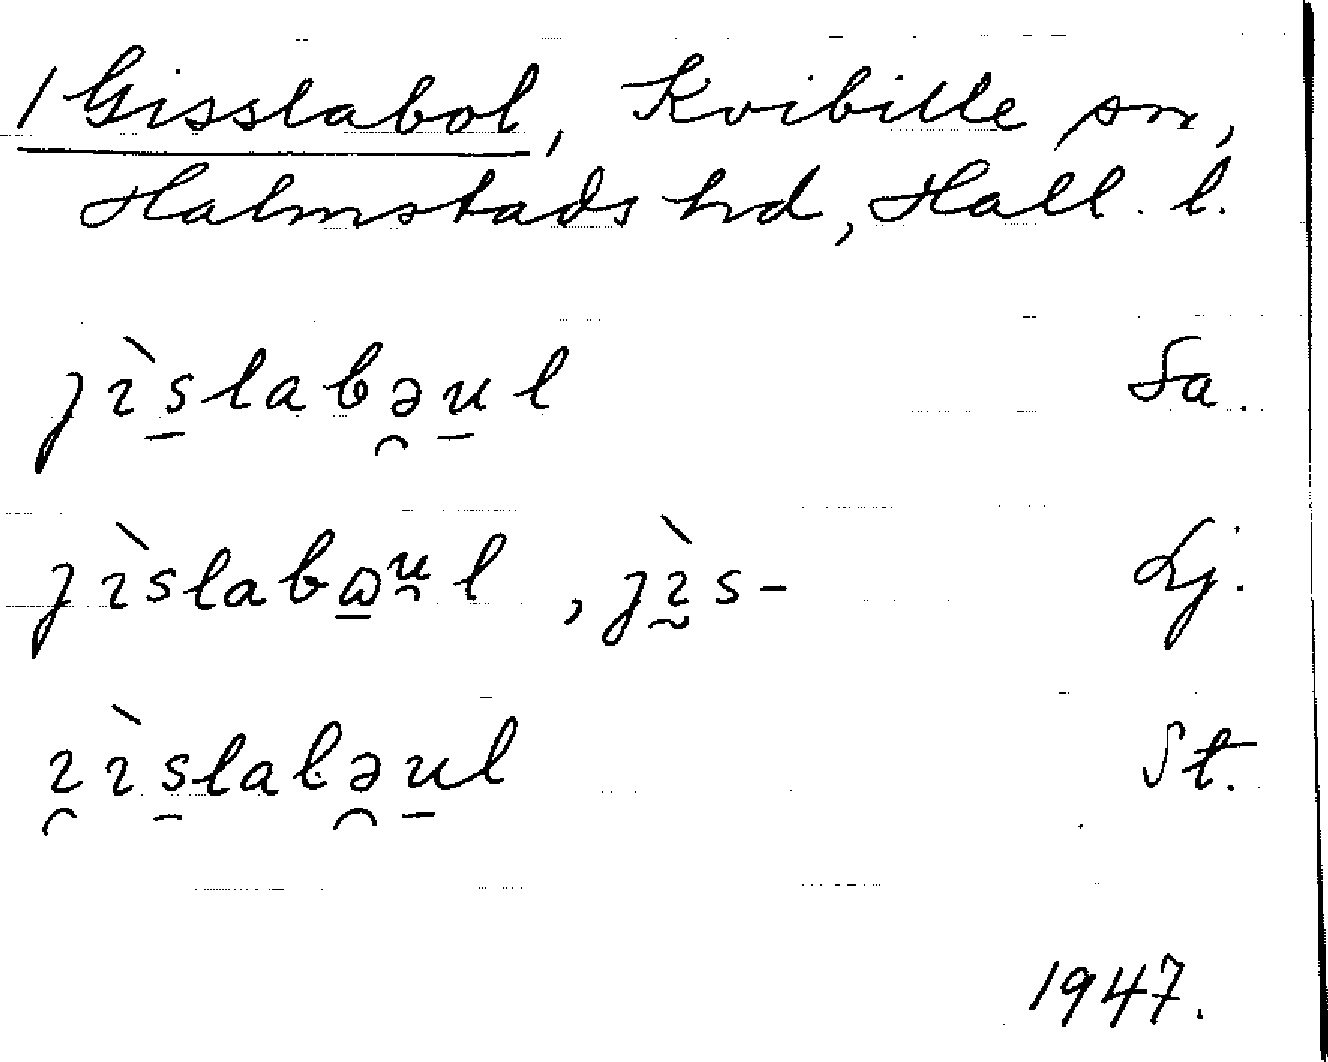 / Gisslabol, Kvibille sn,
Halmstads hd, Hall. l.
jɪ̀s̲labə̯u̲l Sa.
jɪ̀slabɷ̲ᵘ̯l, jɪ̰̀s- Lj.
ɪ̯ɪ̀s̲labə̯u̲l St.
1947.